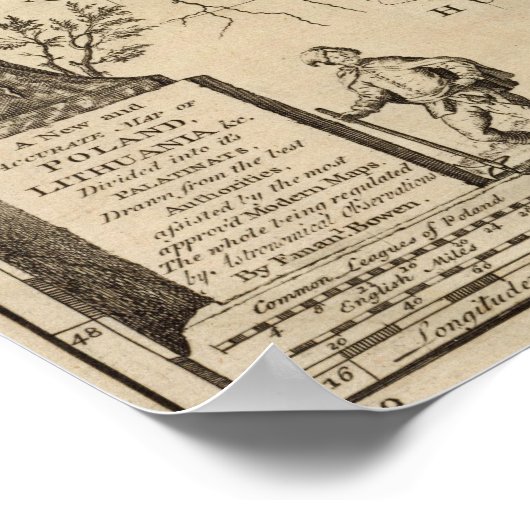 H
A New and
ACCURATE MAP OF
POLAND,
LITHUANIA &c.
Divided into its
PALATINATS,
Drawn from the best
Authorities
assisted by the most
approv'd Modern Maps
The whole being regulated
by Astronomical Observations
By Eman! Bowen.
Common Leagues of Poland
4 8 12 16 20 24 30
English Miles
20 40 60
48
16
Longitude